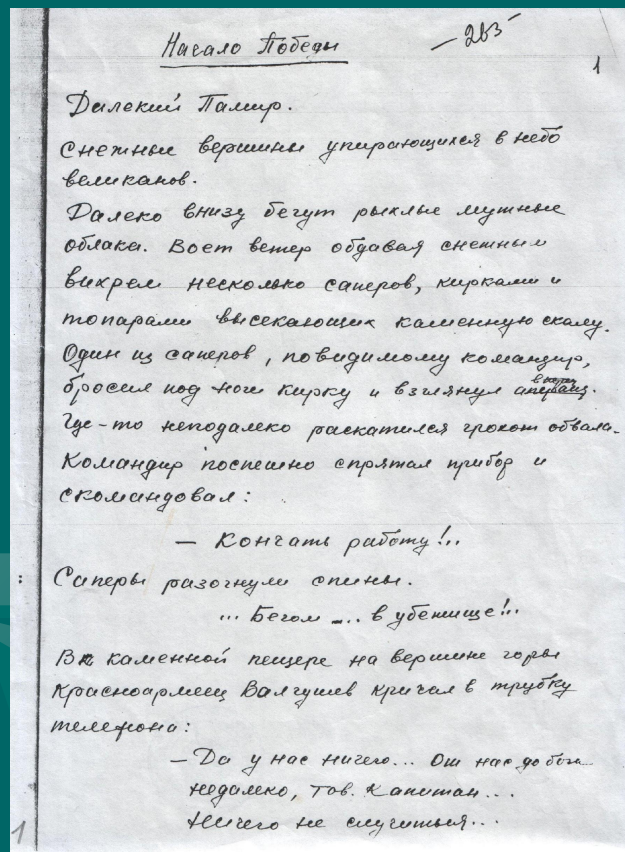 Начало Победы
— 263 —
1
Далекий Памир.
Снежные вершины упирающихся в небо
великанов.
Далеко внизу бегут рыхлые мутные
облака. Воет ветер обдавая снежным
вихрем несколько саперов, кирками и
топарами высекающих каменную скалу.
Один из саперов, повидимому командир,
бросил под ноги кирку и взглянул
Где-то неподалеко раскатился грохот обвала.
Командир поспешно спрятал прибор и
скомандовал:
— Кончать работу!..
:
Саперы разогнули спины.
... Бегом .... в убежище!..
В каменной пещере на вершине горы
красноармеец Валгушев кричал в трубку
телефона:
— Да у нас ничего... От нас до бога
недалеко, тов. Капитан...
Ничего не случиться...
1